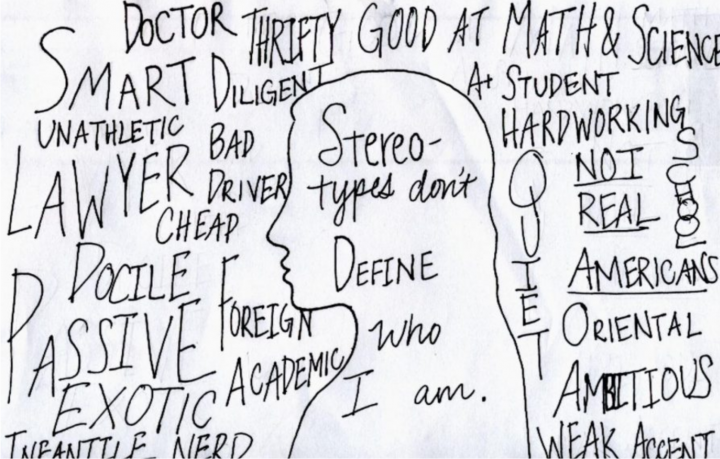 DOCTOR
THRIFTY
GOOD AT MATH & SCIENCE
SMART
DILIGENT
A+ STUDENT
UNATHLETIC
BAD
DRIVER
HARDWORKING
LAWYER
CHEAP
DOCILE
PASSIVE
FOREIGN
EXOTIC
ACADEMIC
INFANTILE NERD
Stereo-
types don't
DEFINE
who
I am.
QUIET
NOT
REAL
AMERICANS
ORIENTAL
AMBITIOUS
WEAK ACCENT